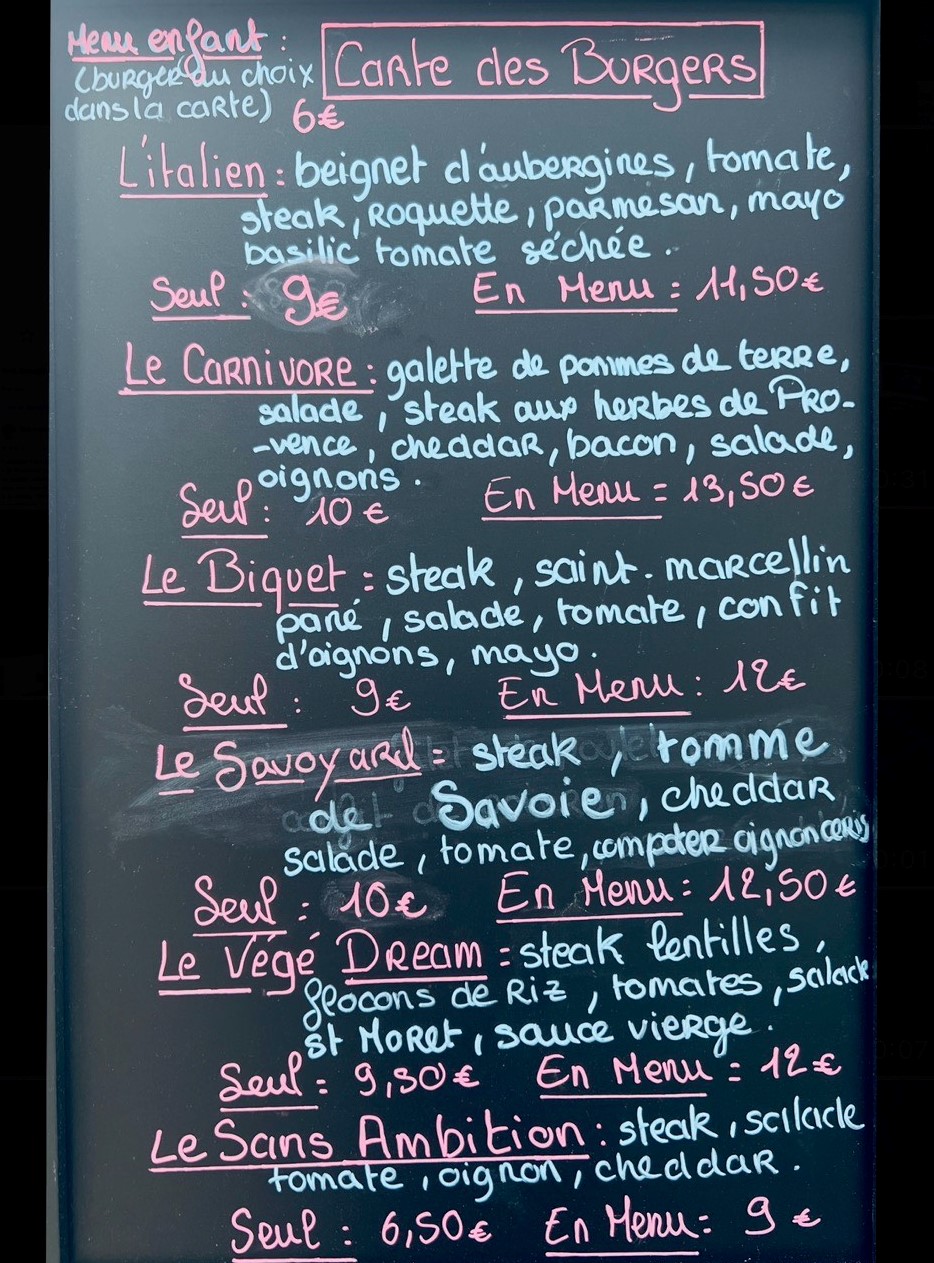 Menu enfant :
(burger au choix
dans la carte) 6€
Carte des Burgers
L'italien : beignet d'aubergines, tomate,
steak, Roquette, parmesan, mayo
basilic tomate séchée.
Seul : 9€ En Menu : 11,50€
Le Carnivore : galette de pommes de terre,
salade, steak aux herbes de Pro-
-vence, cheddar, bacon, salade,
oignons.
Seul : 10€ En Menu = 13,50€
Le Biquet : steak, saint-marcellin
pané, salade, tomate, confit
d'oignons, mayo.
Seul : 9€ En Menu : 12€
Le Savoyard = steak, tomme
de Savoie, cheddar,
salade, tomate, oignon
Seul : 10€ En Menu : 12,50€
Le Végé Dream = steak lentilles,
flocons de Riz, tomates, salade
St Moret, sauce vierge.
Seul = 9,50€ En Menu = 12€
Le Sans Ambition : steak, salade
tomate, oignon, cheddar.
Seul : 6,50€ En Menu : 9€